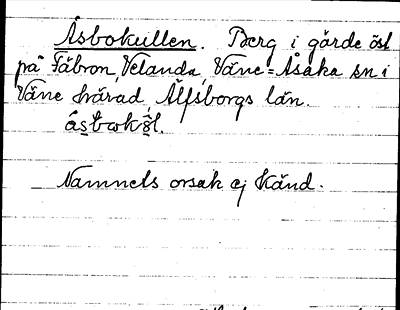 Åsbokullen. Berg i gärde öst
på Fäbron, Velanda, Väne=Åsaka sn i
Väne härad, Älfsborgs län.
Namnets orsak ej känd.